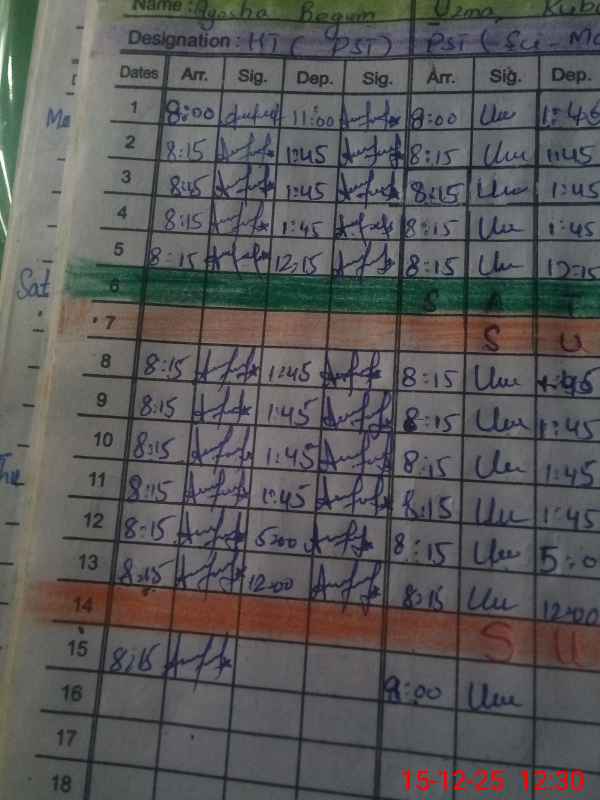 Name : Ayesha Begum Uzma Kub
Designation : HT ( PST) PST (-Sci-Ma
Dates Arr. Sig. Dep. Sig. Arr. Sig. Dep.
1 8:00 11:00 8:00 1:45
2 8:15 1:45 8:15 1:45
3 8:15 1:45 8:15 1:45
4 8:15 1:45 8:15 1:45
5 8:15 12:15 8:15 12:15
Sat
6 S A T
7 S U
8 8:15 1:45 8:15 1:45
9 8:15 1:45 8:15 1:45
10 8:15 1:45 8:15 1:45
11 8:15 1:45 8:15 1:45
12 8:15 5:00 8:15 5:0
13 8:15 12:00 8:15 12:00
14 S U
15 8:15 8:00
16
17
18
15-12-25 12:30